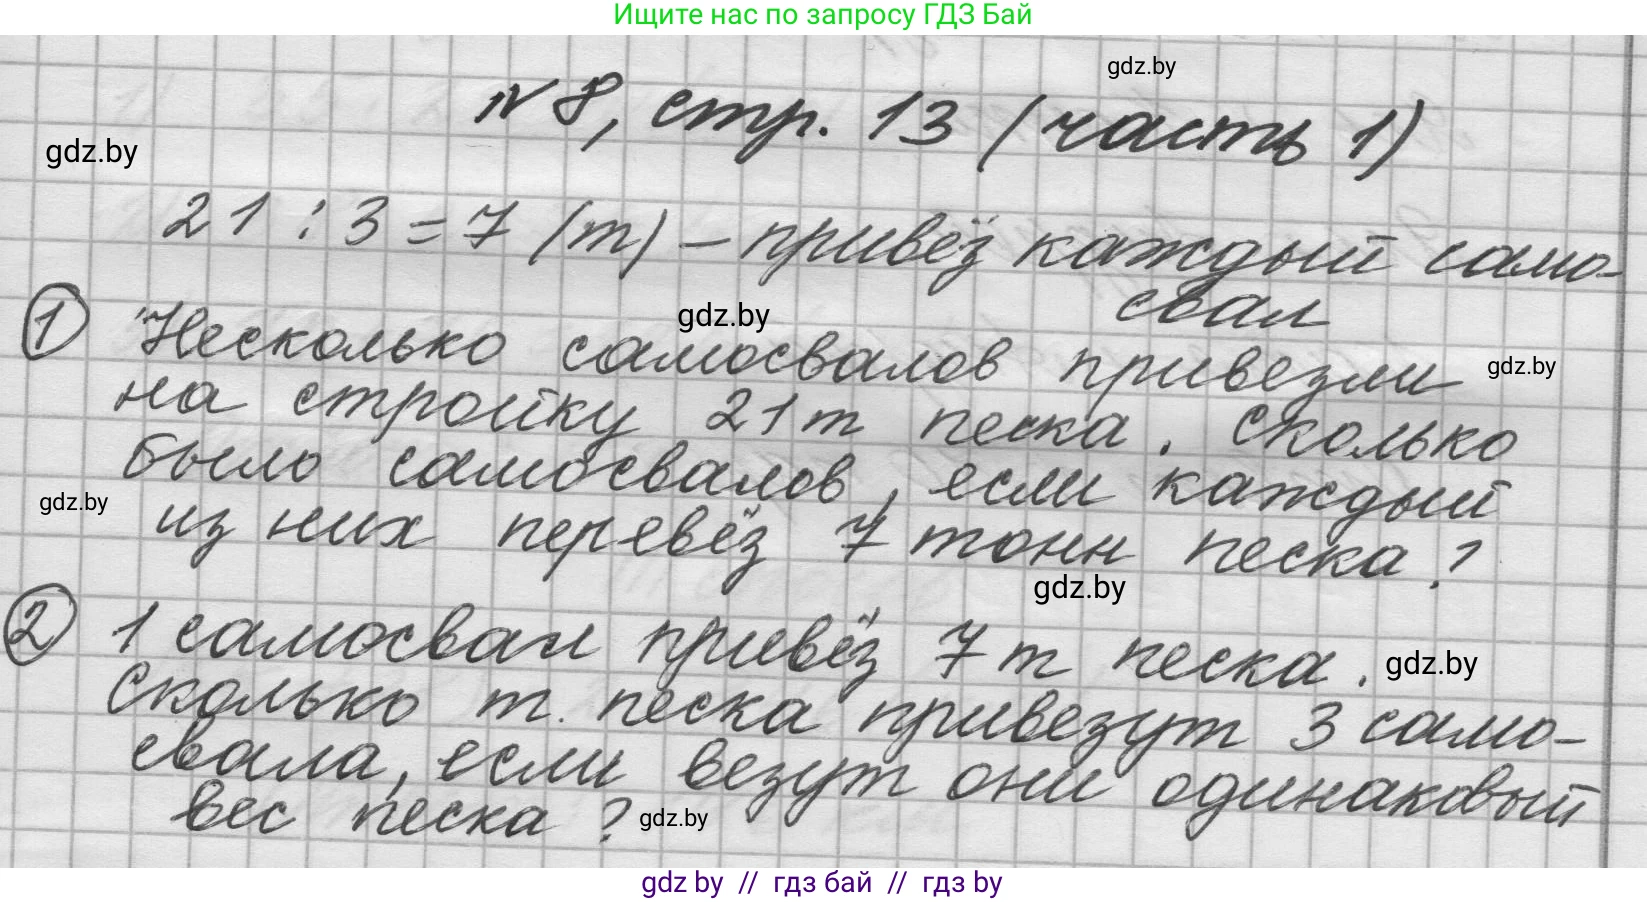 Ищите нас по запросу ГДЗ Бай
gdz.by
N 8, стр. 13 (часть 1)
gdz.by
21 : 3 = 7 (т) – привёз каждый само-
свал
gdz.by
1 Несколько самосвалов привезли
gdz.by
на стройку 21 т песка. Сколько
было самосвалов, если каждый
gdz.by
из них перевёз 7 тонн песка?
gdz.by
2 1 самосвал привёз 7 т песка.
gdz.by
Сколько т. песка привезут 3 само-
свала, если везут они одинаковый
вес песка?
gdz.by
gdz by // гдз бай // гдз by